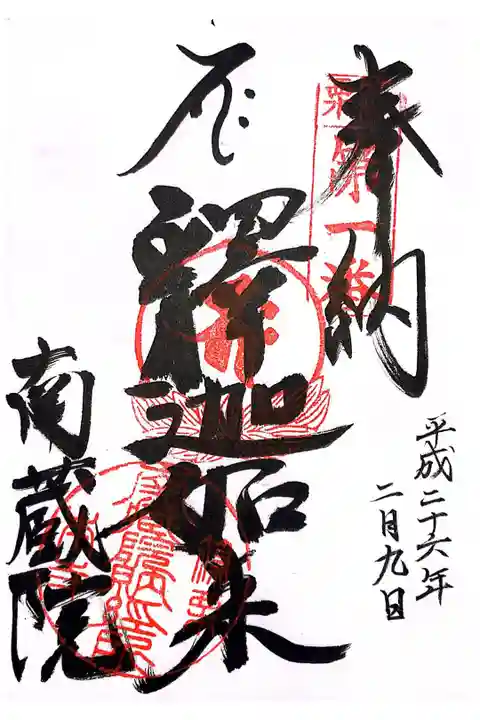 奉納
平成二十六年
二月九日
釋迦如来
南蔵院
第一番